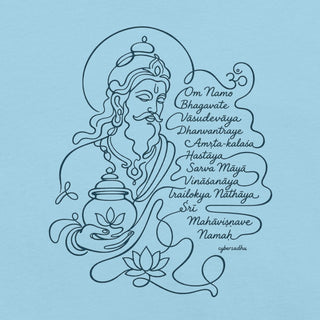 ॐ
Om Namo
Bhagavate
Vāsudevāya
Dhanvantraye
Amṛta-kalaśa
Hastāya
Sarva Māyā
Vināśanāya
trailokya Nāthāya
Śri
Mahāviṣnave
Namaḥ
cybersadhu